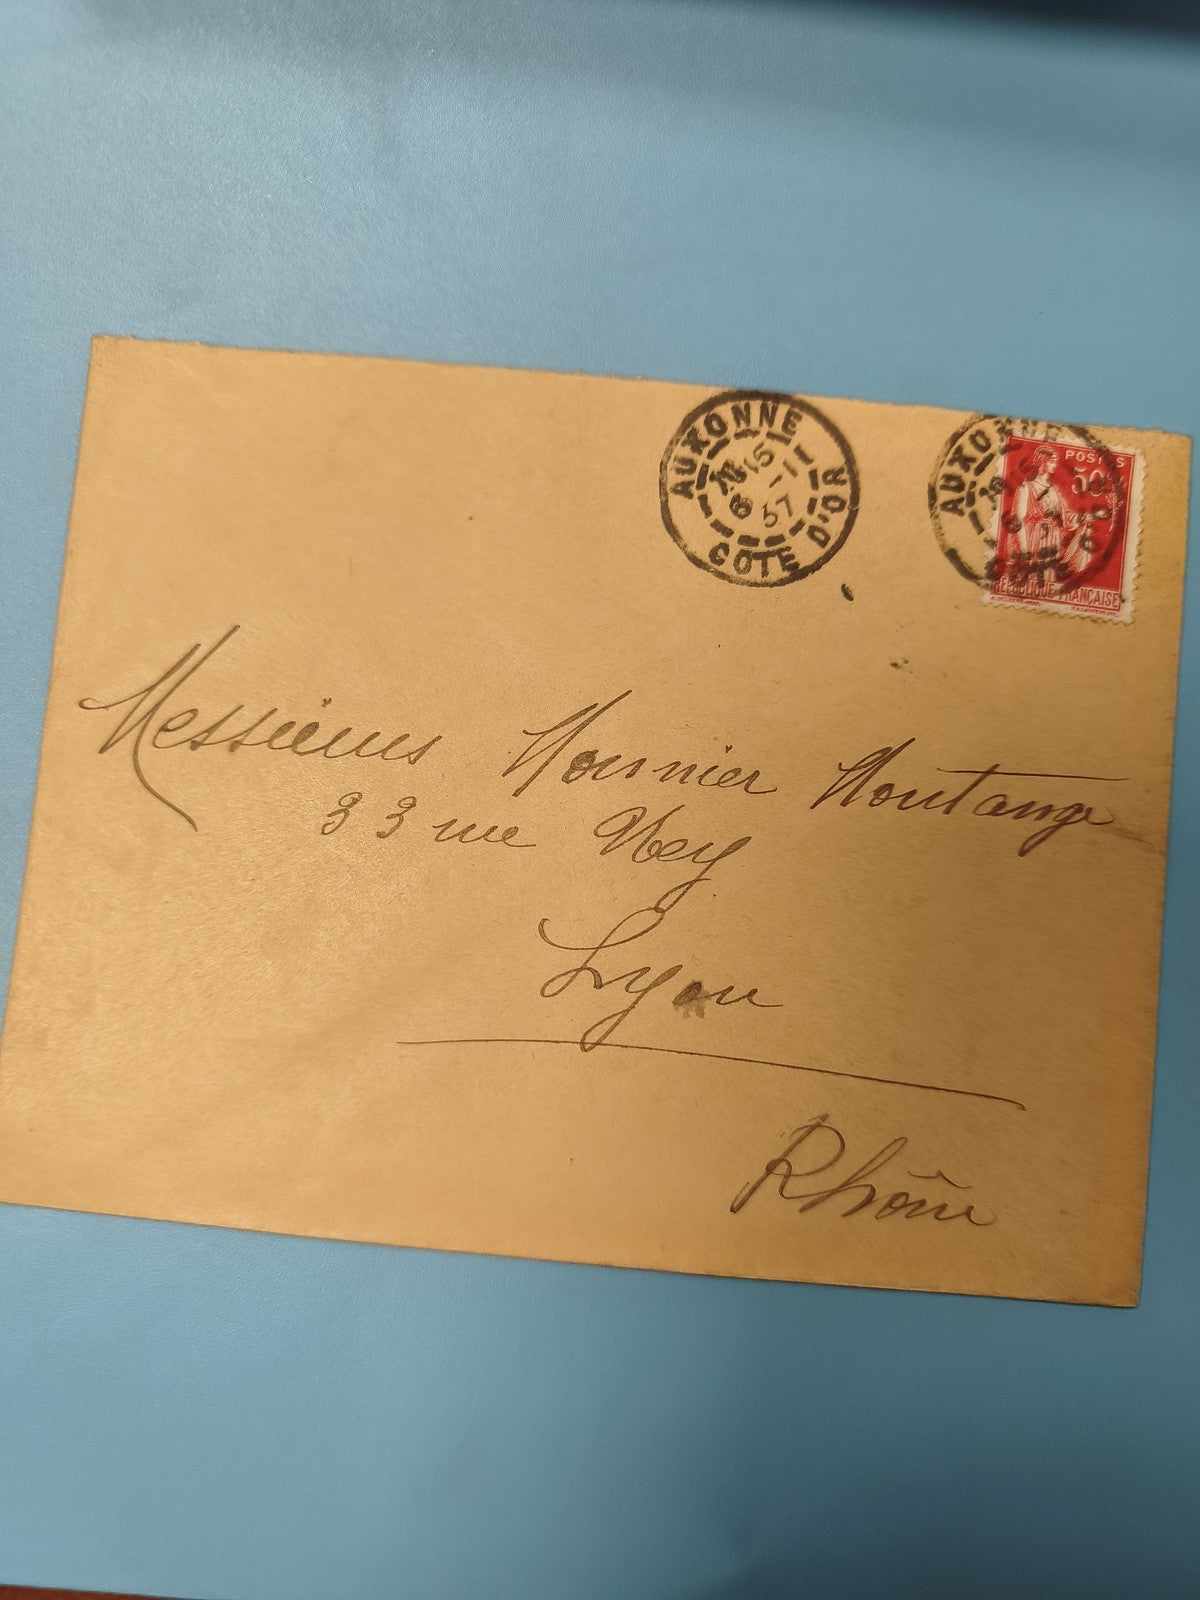 AUXONNE
16
6 -1
37
COTE D'OR
AUXONNE
COTE D'OR
POSTES
50
REPUBLIQUE FRANÇAISE
Messieurs Monnier Montange
33 rue Ney
Lyon
Rhône